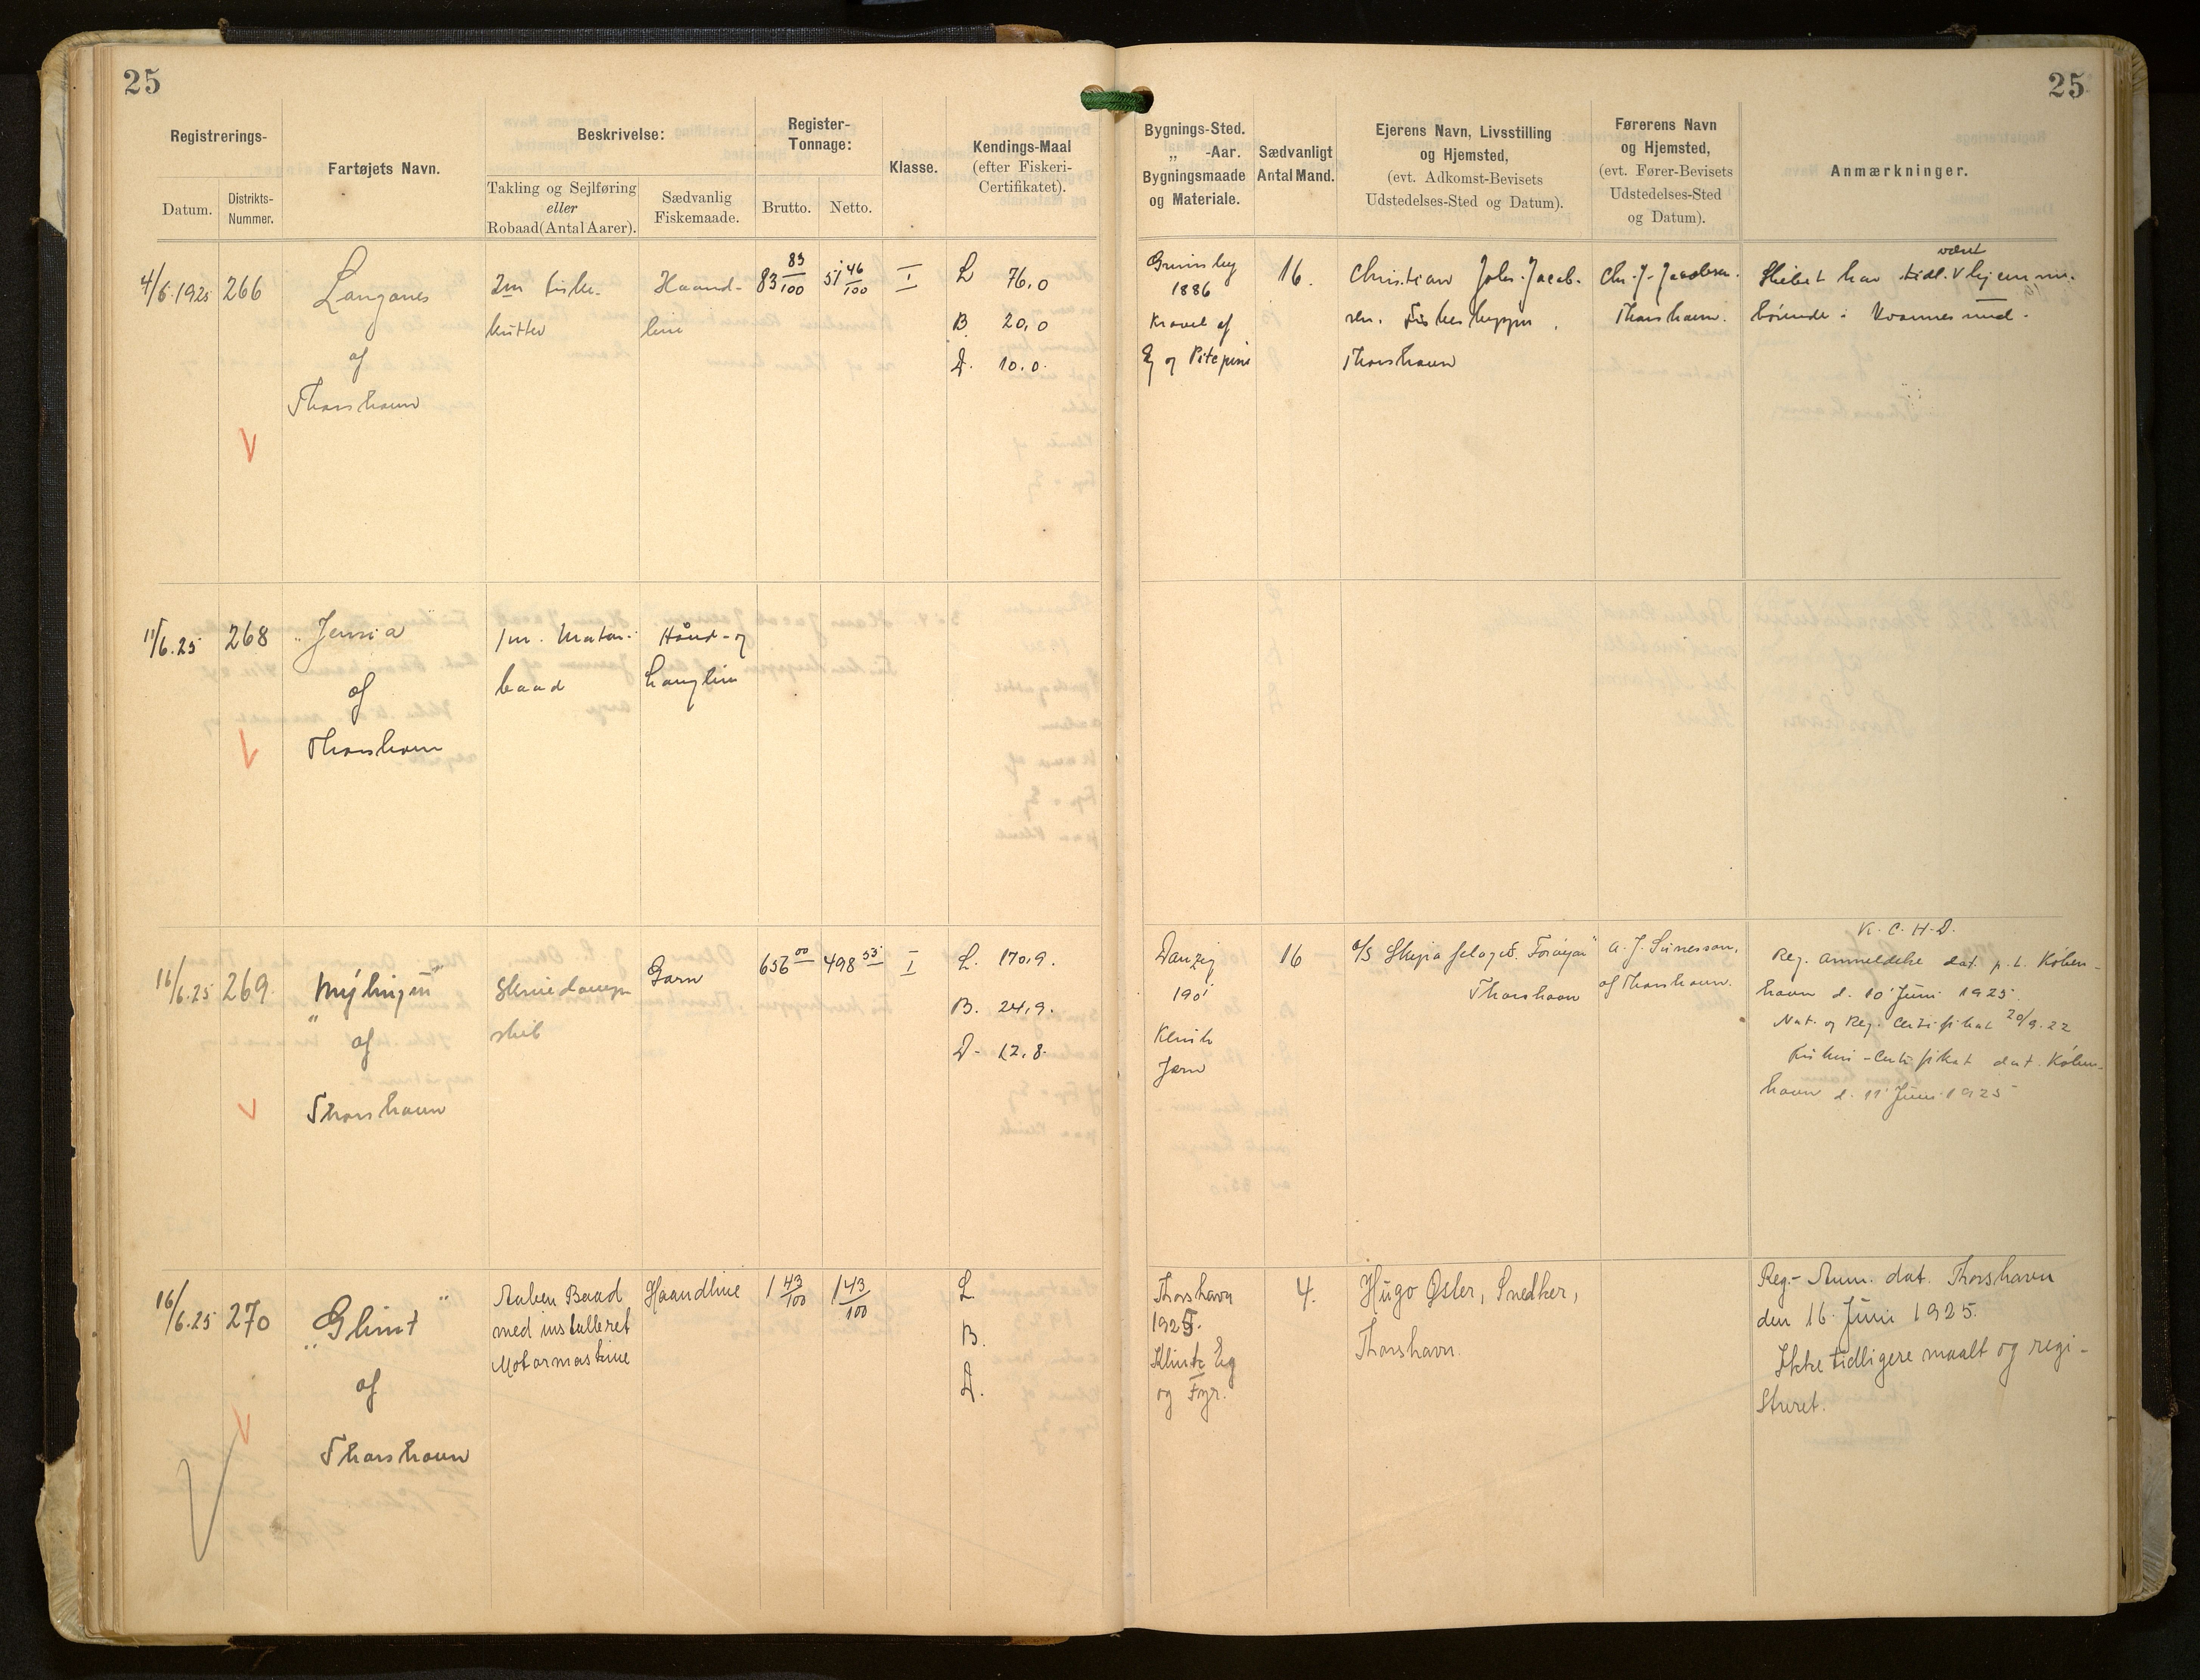 25
25
Registrerings-
Datum.
Distrikts-
Nummer.
Fartøjets Navn.
Beskrivelse:
Takling og Sejlføring
eller
Robaad (Antal Aarer).
Sædvanlig
Fiskemaade.
Register-
Tonnage:
Brutto.
Netto.
Klasse.
Kendings-Maal
(efter Fiskeri-
Certifikatet).
Bygnings-Sted.
„ -Aar.
Bygningsmaade
og Materiale.
Sædvanligt
Antal Mand.
Ejerens Navn, Livsstilling
og Hjemsted,
(evt. Adkomst-Bevisets
Udstedelses-Sted og Datum).
Førerens Navn
og Hjemsted,
(evt. Fører-Bevisets
Udstedelses-Sted
og Datum).
Anmærkninger.
4/6.1925
266
Langanes
af
Thorshavn
2m Fiske-
kutter
Haand-
line
83 83/100
51 46/100
I
L 76,0
B 20,0
D. 10,0
Grimsby
1886
Kravel af
Eg og Pitchpine
16.
Christian Johs. Jacob-
sen. Fiskeskipper.
Thorshavn
Chr. J. Jacobsen.
Thorshavn.
Skibet har tidl. V hjemme-
været
11/6.25
268
„Jensia
af
Thorshavn
1m. Motor-
baad
Haand- og
Langline
16/6.25
269.
„Mýlingur"
af
Thorshavn
Skruedamp
skib
Garn
656 00
498 53
I
L. 170,9.
B. 24,9.
D. 12,8.
Danzig
1901
Klink
Jærn
16
A/S Skipafelagið Føroyar
Thorshavn
af Thorshavn.
K. C. H. D.
Reg. Anmeldelse dat. p. t. Køben-
havn d. 10 Juni 1925.
Nat. og Reg. Certifikat 20/9.22
Fiskeri-Certifikat dat. Køben-
havn d. 11 Juni 1925
16/6.25
270
„Glimt"
af
Thorshavn
Aaben Baad
med installeret
Motormaskine
Haandline
1 43/100
1 43/100
L.
B.
D.
Thorshavn
1925.
Klink Eg
og Fyr.
4.
Hugo Øster, Snedker,
Thorshavn.
Reg.- Anm. dat. Thorshavn
den 16. Juni 1925.
Ikke tidligere maalt og regi-
streret.